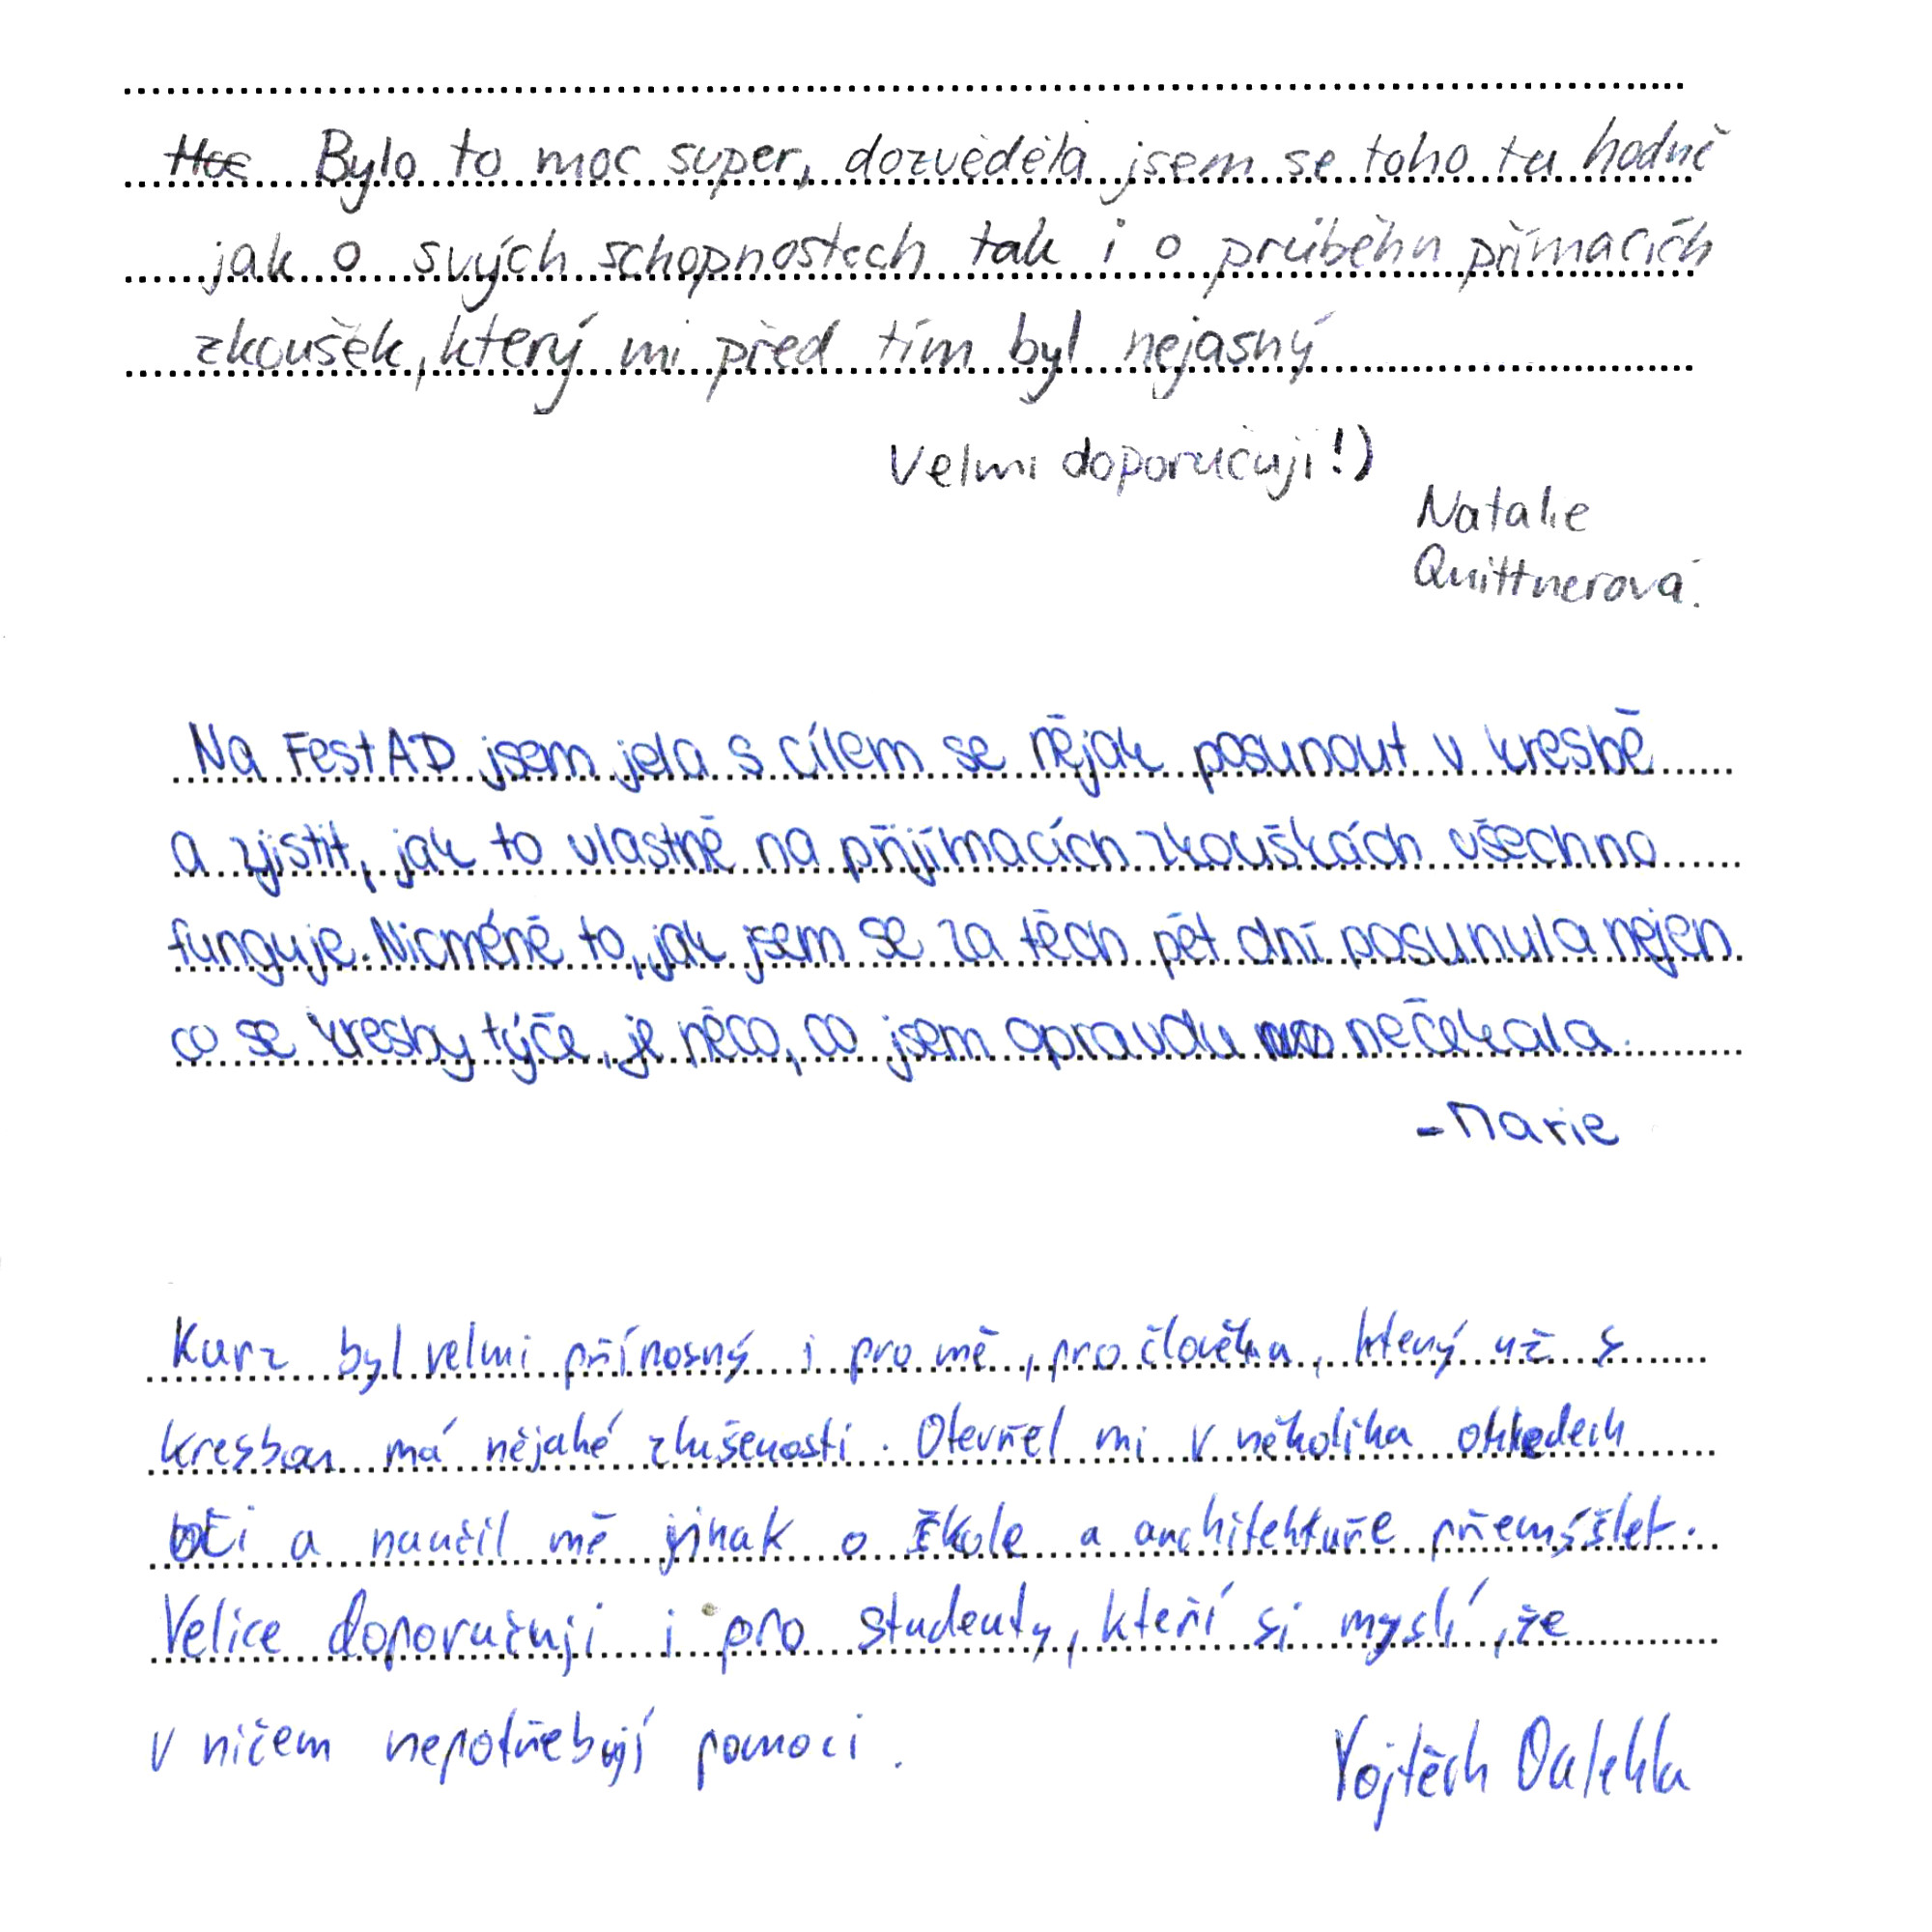 Moc Bylo to moc super, dozvěděla jsem se toho tu hodně
jak o svých schopnostech tak i o průběhu přímacích
zkoušek, který mi před tím byl nejasný
Velmi doporučuji!)
Natalie
Quittnerová.
Na FestAD jsem jela s cílem se nějak posunout v kresbě
a zjistit, jak to vlastně na přijímacích zkouškách všechno
funguje. Nicméně to, jak jsem se za těch pět dní posunula nejen
co se kresby týče, je něco, co jsem opravdu nečekala.
-Marie
Kurz byl velmi přínosný i pro mě, pro člověka, který už s
kresbou má nějaké zkušenosti. Otevřel mi v několika ohledech
oči a naučil mě jinak o škole a architektuře přemýšlet.
Velice doporučuji i pro studenty, kteří si myslí, že
v ničem nepotřebují pomoci.
Vojtěch